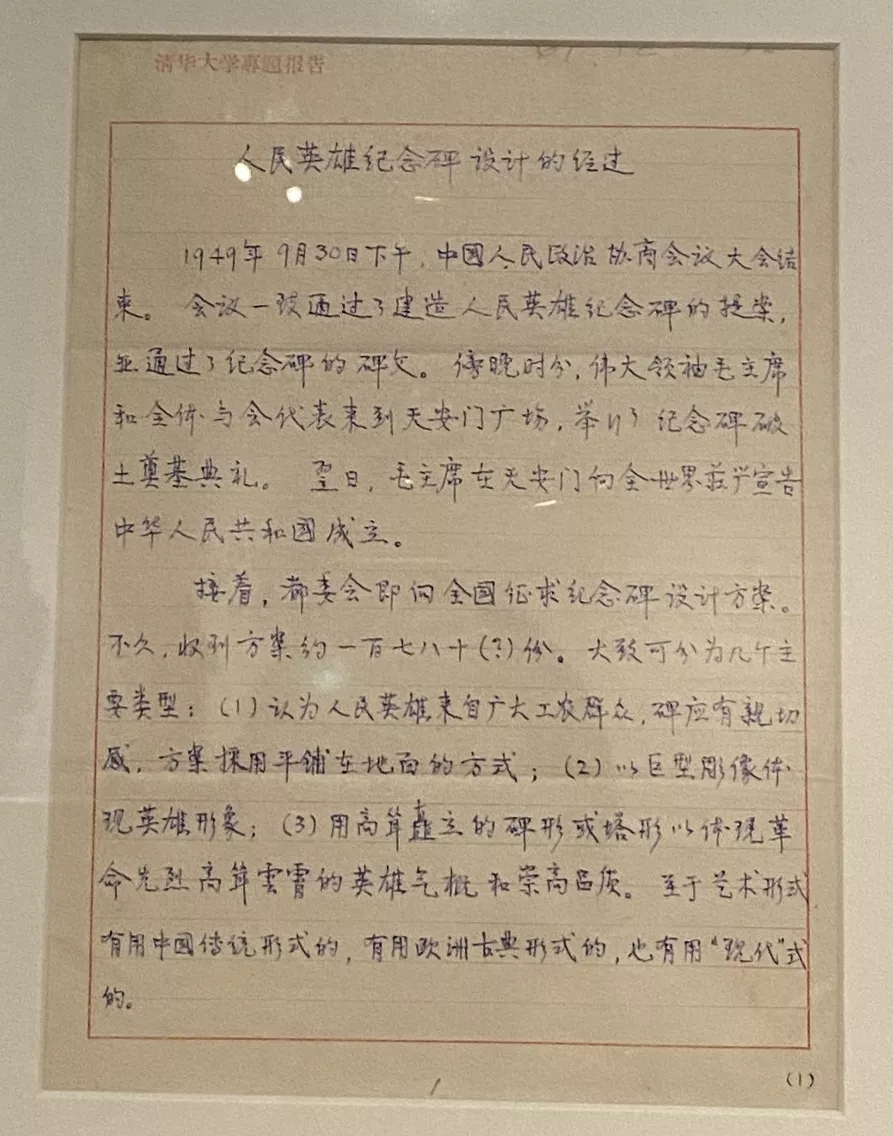 清华大学專題报告
人民英雄纪念碑设计的经过
1949年9月30日下午，中國人民政治协商会议大会结
束。会议一致通过了建造人民英雄纪念碑的提案，
並通过了纪念碑的碑文。傍晚时分，伟大领袖毛主席
和全体与会代表来到天安门广场，举行了纪念碑破
土奠基典礼。翌日，毛主席在天安门向全世界莊严宣告
中华人民共和國成立。
接着，都委会即向全国征求纪念碑设计方案。
不久，收到方案约一百七八十(?)份。大致可分为几个主
要类型：(1)认为人民英雄来自广大工农群众，碑应有親切
感，方案採用平铺在地面的方式；(2)以巨型彫像体
现英雄形象；(3)用高耸矗立的碑形或塔形以体现革
命先烈高耸雲霄的英雄气概和崇高品质。至于艺术形式
有用中國传统形式的，有用欧洲古典形式的，也有用“现代”式
的。
(1)